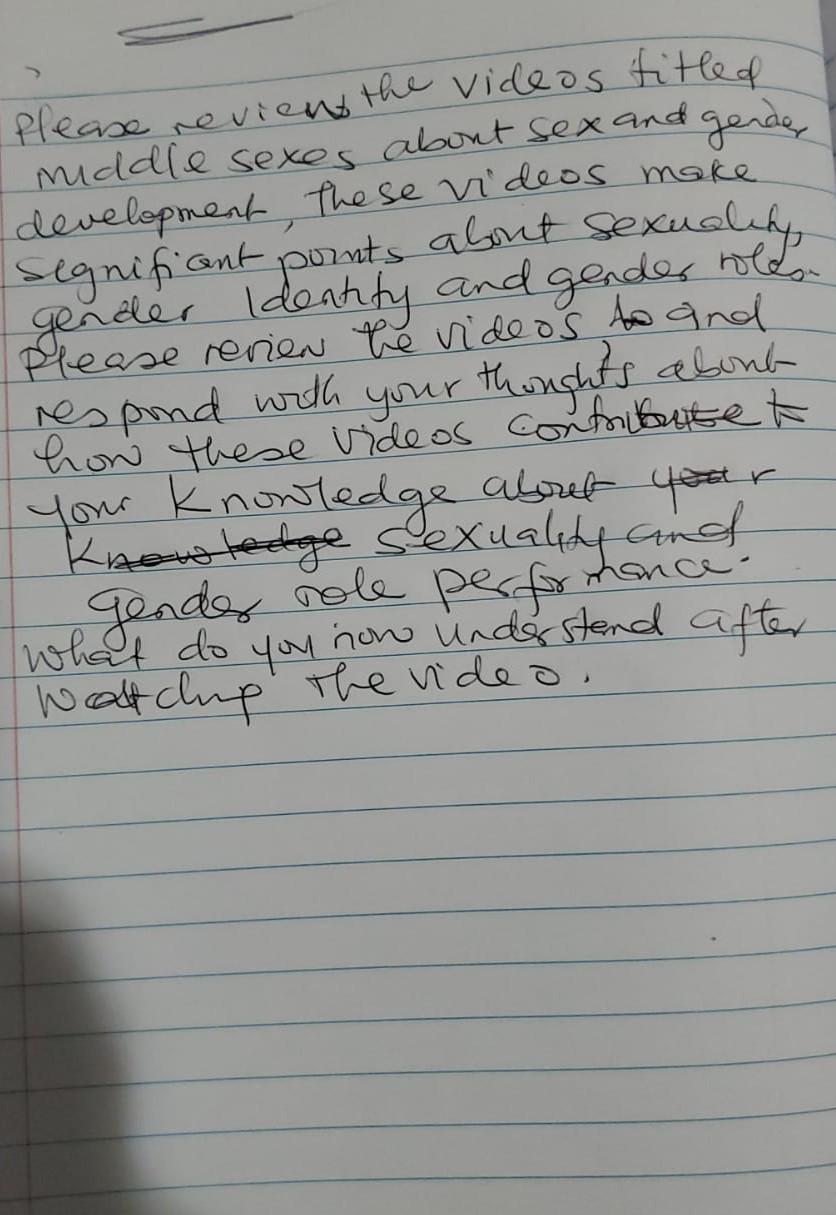 Please reviews the videos titled
middle sexes about sex and gender
development, these videos make
significant points about sexuality,
gender Identity and gender roles.
Please review the videos to and
respond with your thoughts about
how these videos contribute to
your knowledge about your
knowledge sexuality and
gender role performance.
What do you now understand after
watching the video.